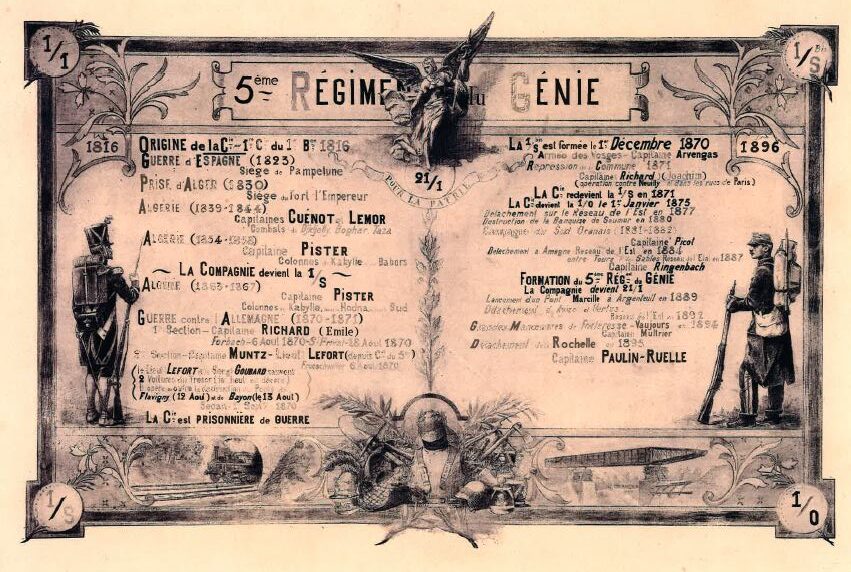 1/1
1/S Bis
5ème RÉGIMEN du GÉNIE
1816
1896
21/1
POUR LA PATRIE
ORIGINE de la Cie 1re Cie du 1er Bon 1816
GUERRE d'ESPAGNE (1823)
Siège de Pampelune
PRISE d'ALGER (1830)
Siège du fort l'Empereur
ALGÉRIE (1839-1844)
Capitaines CUENOT et LEMOR
Combats de Djidjelly Boghar Taza
ALGÉRIE (1854-1858)
Capitaine PISTER
Colonnes Kabylie Babors
LA COMPAGNIE devient la 1/S
ALGÉRIE (1863-1867)
Capitaine PISTER
Colonnes Kabylie Hodna Sud
GUERRE contre l'ALLEMAGNE (1870-1871)
1e Section-Capitaine RICHARD (Emile)
Forbach-6 Aout 1870-St Privat-18 Aout 1870
2e Section-Capitaine MUNTZ-Lieut LEFORT (depuis Cel du 5e)
Froeschwiller 6 Aout 1870
(le Lieut LEFORT et le Sergt GOUBARD sauvent
2 Voitures du Trésor (le Lieut est décoré)
Flavigny (12 Aout) et de Bayon (le 13 Aout)
Sedan 1 Sept 1870
LA Cie est PRISONNIÈRE de GUERRE
LA 1/S bis est formée le 1er Décembre 1870
Armée des Vosges-Capitaine Arvengas
Répression de la Commune 1871
Capitaine Richard (Joachim)
(opération contre Neuilly et dans les rues de Paris)
LA Cie redevient la 1/S en 1871
LA Cie devient la 1/0 le 1er Janvier 1875
Détachement sur le Réseau de l'Est en 1877
Destruction de la Banquise de Saumur en 1880
Campagne du Sud Oranais (1881-1882)
Capitaine Picot
Détachement à Amagne Réseau de l'Est en 1884
Sables Réseau de l'Etat en 1887
Capitaine Ringenbach
FORMATION du 5ème RÉGt du GÉNIE
La Compagnie devient 21/1
Lancement d'un Pont Marcille à Argenteuil en 1889
Réseau de l'Est en 1892
Grandes Manoeuvres de Forteresse-Vaujours en 1894
Capitaine Multrier
Détachement de la Rochelle en 1895
Capitaine PAULIN-RUELLE
1/S
1/0